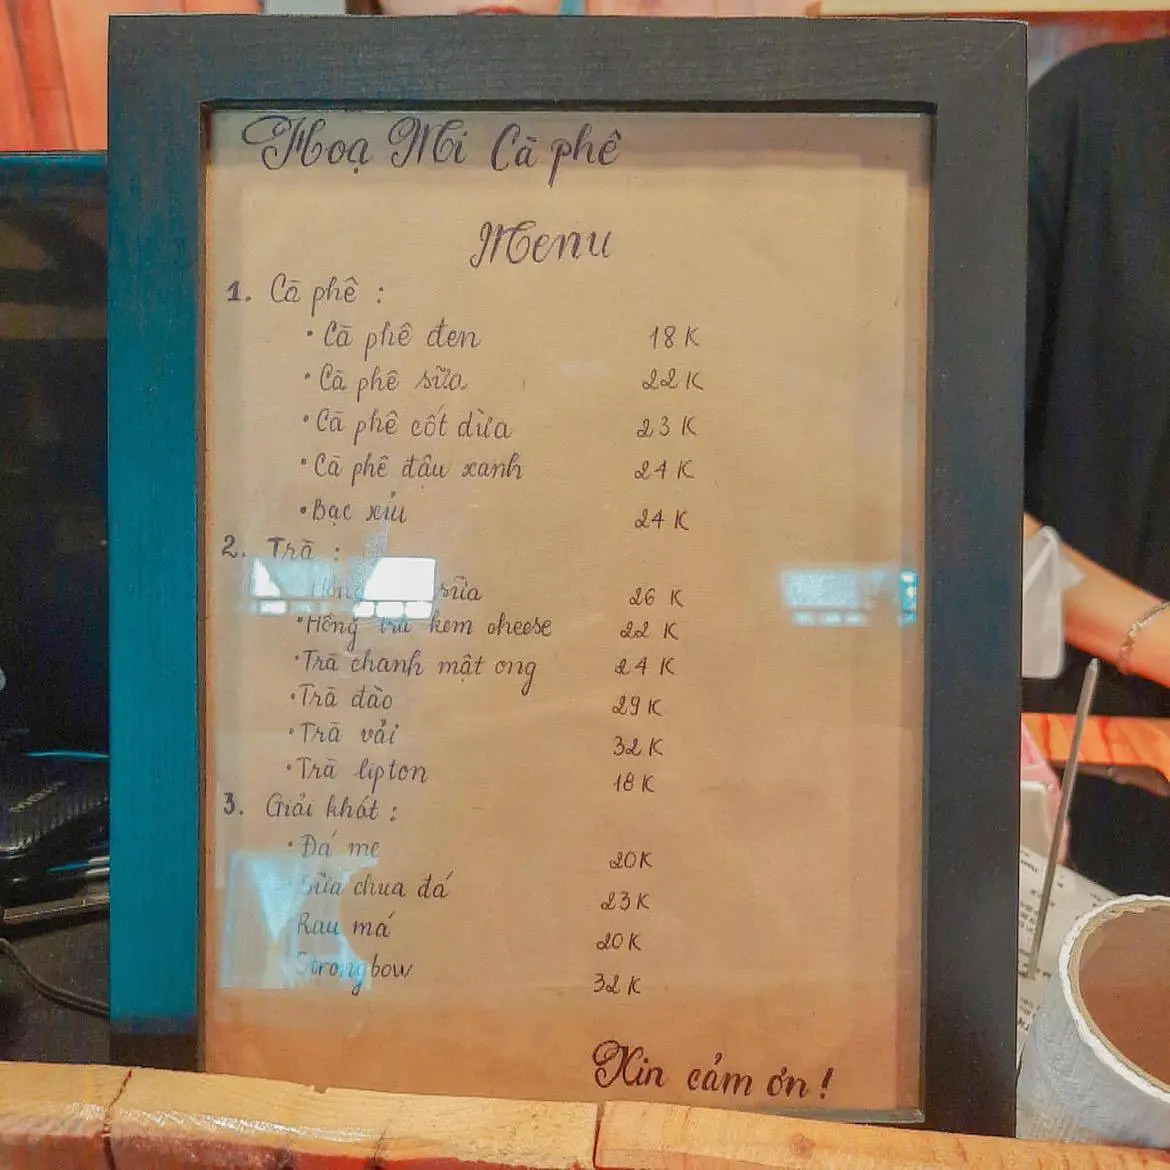 Hoạ Mi Cà phê
Menu
1. Cà phê :
• Cà phê đen 18K
• Cà phê sữa 22K
• Cà phê cốt dừa 23K
• Cà phê đậu xanh 24K
• Bạc xỉu 24K
2. Trà :
sữa 26K
• Hồng trà kem cheese 22K
• Trà chanh mật ong 24K
• Trà đào 29K
• Trà vải 32K
• Trà lipton 18K
3. Giải khát :
• Đá me 20K
• Sữa chua đá 23K
• Rau má 20K
• Strongbow 32K
Xin cảm ơn !